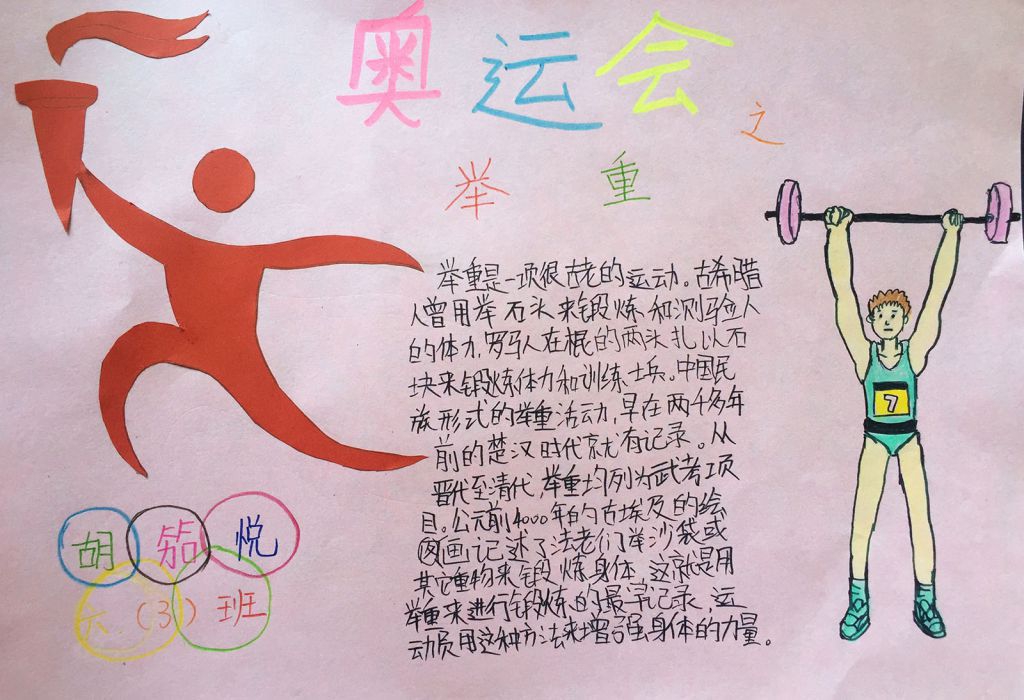 奥运会
之
举重
举重是一项很古老的运动。古希腊
人曾用举石头来锻炼和测验人
的体力，罗马人在棍的两头扎以石
块来锻炼体力和训练士兵。中国民
族形式的举重活动，早在两千多年
前的楚汉时代就有记录。从
晋代至清代，举重均列为武考项
目。公元前4000年的古埃及的绘
图画记述了法老们举沙袋或
其它重物来锻炼身体，这就是用
举重来进行锻炼的最早记录，运
动员用这种方法来增强身体的力量。
7
胡笳悦
六（3）班